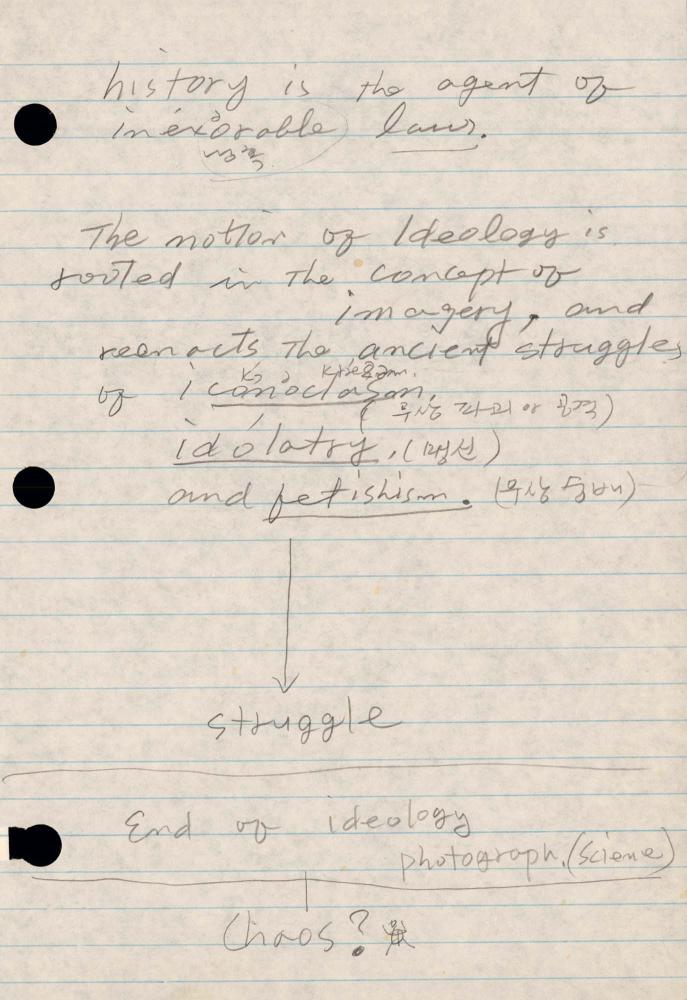 history is the agent of
inexorable laws.
냉혹
The notion of Ideology is
rooted in the concept of
imagery, and
reenacts the ancient struggles
of iconoclasm,
(우상 파괴 or 공격)
idolatry, (맹신)
and fetishism. (우상 숭배)
struggle
End of ideology
photograph. (Science)
Chaos?